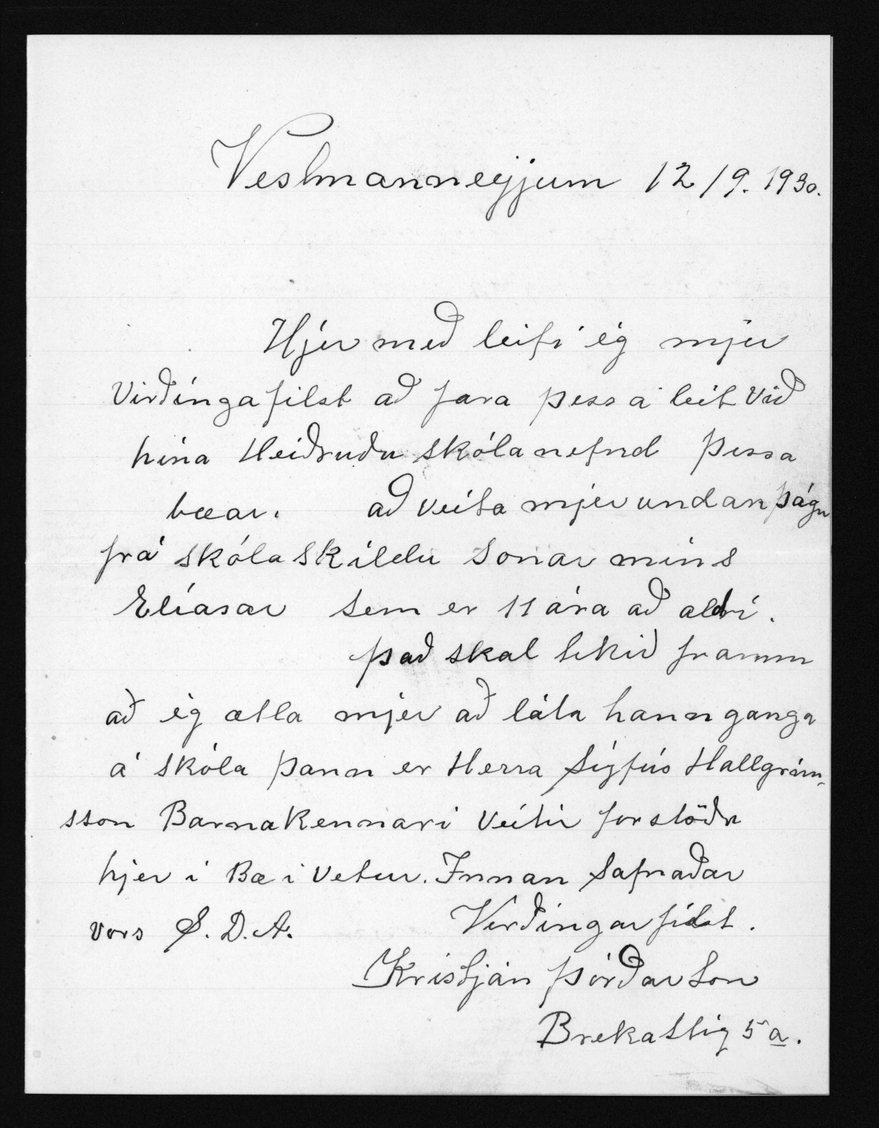 Vestmanneyjum 12/9. 1930.
Hjer með leifi ég mjer
Virðingafilst að fara þess á leit við
hina Heiðruðu skólanefnd Þessa
bæar. að veita mjer undanþágu
frá skólaskildu sonar míns
Elíasar sem er 11 ára að aldri.
það skal tekið framm
að ég ætla mjer að láta hann ganga
á skóla þann er Herra Sigfús Hallgrím-
sson Barnakennari veitir forstöðu
hjer í Bæ í vetur. Innan Safnaðar
vors S.D.A. Virðingarfilst.
Kristján Þórðarson
Brekastig 5a.